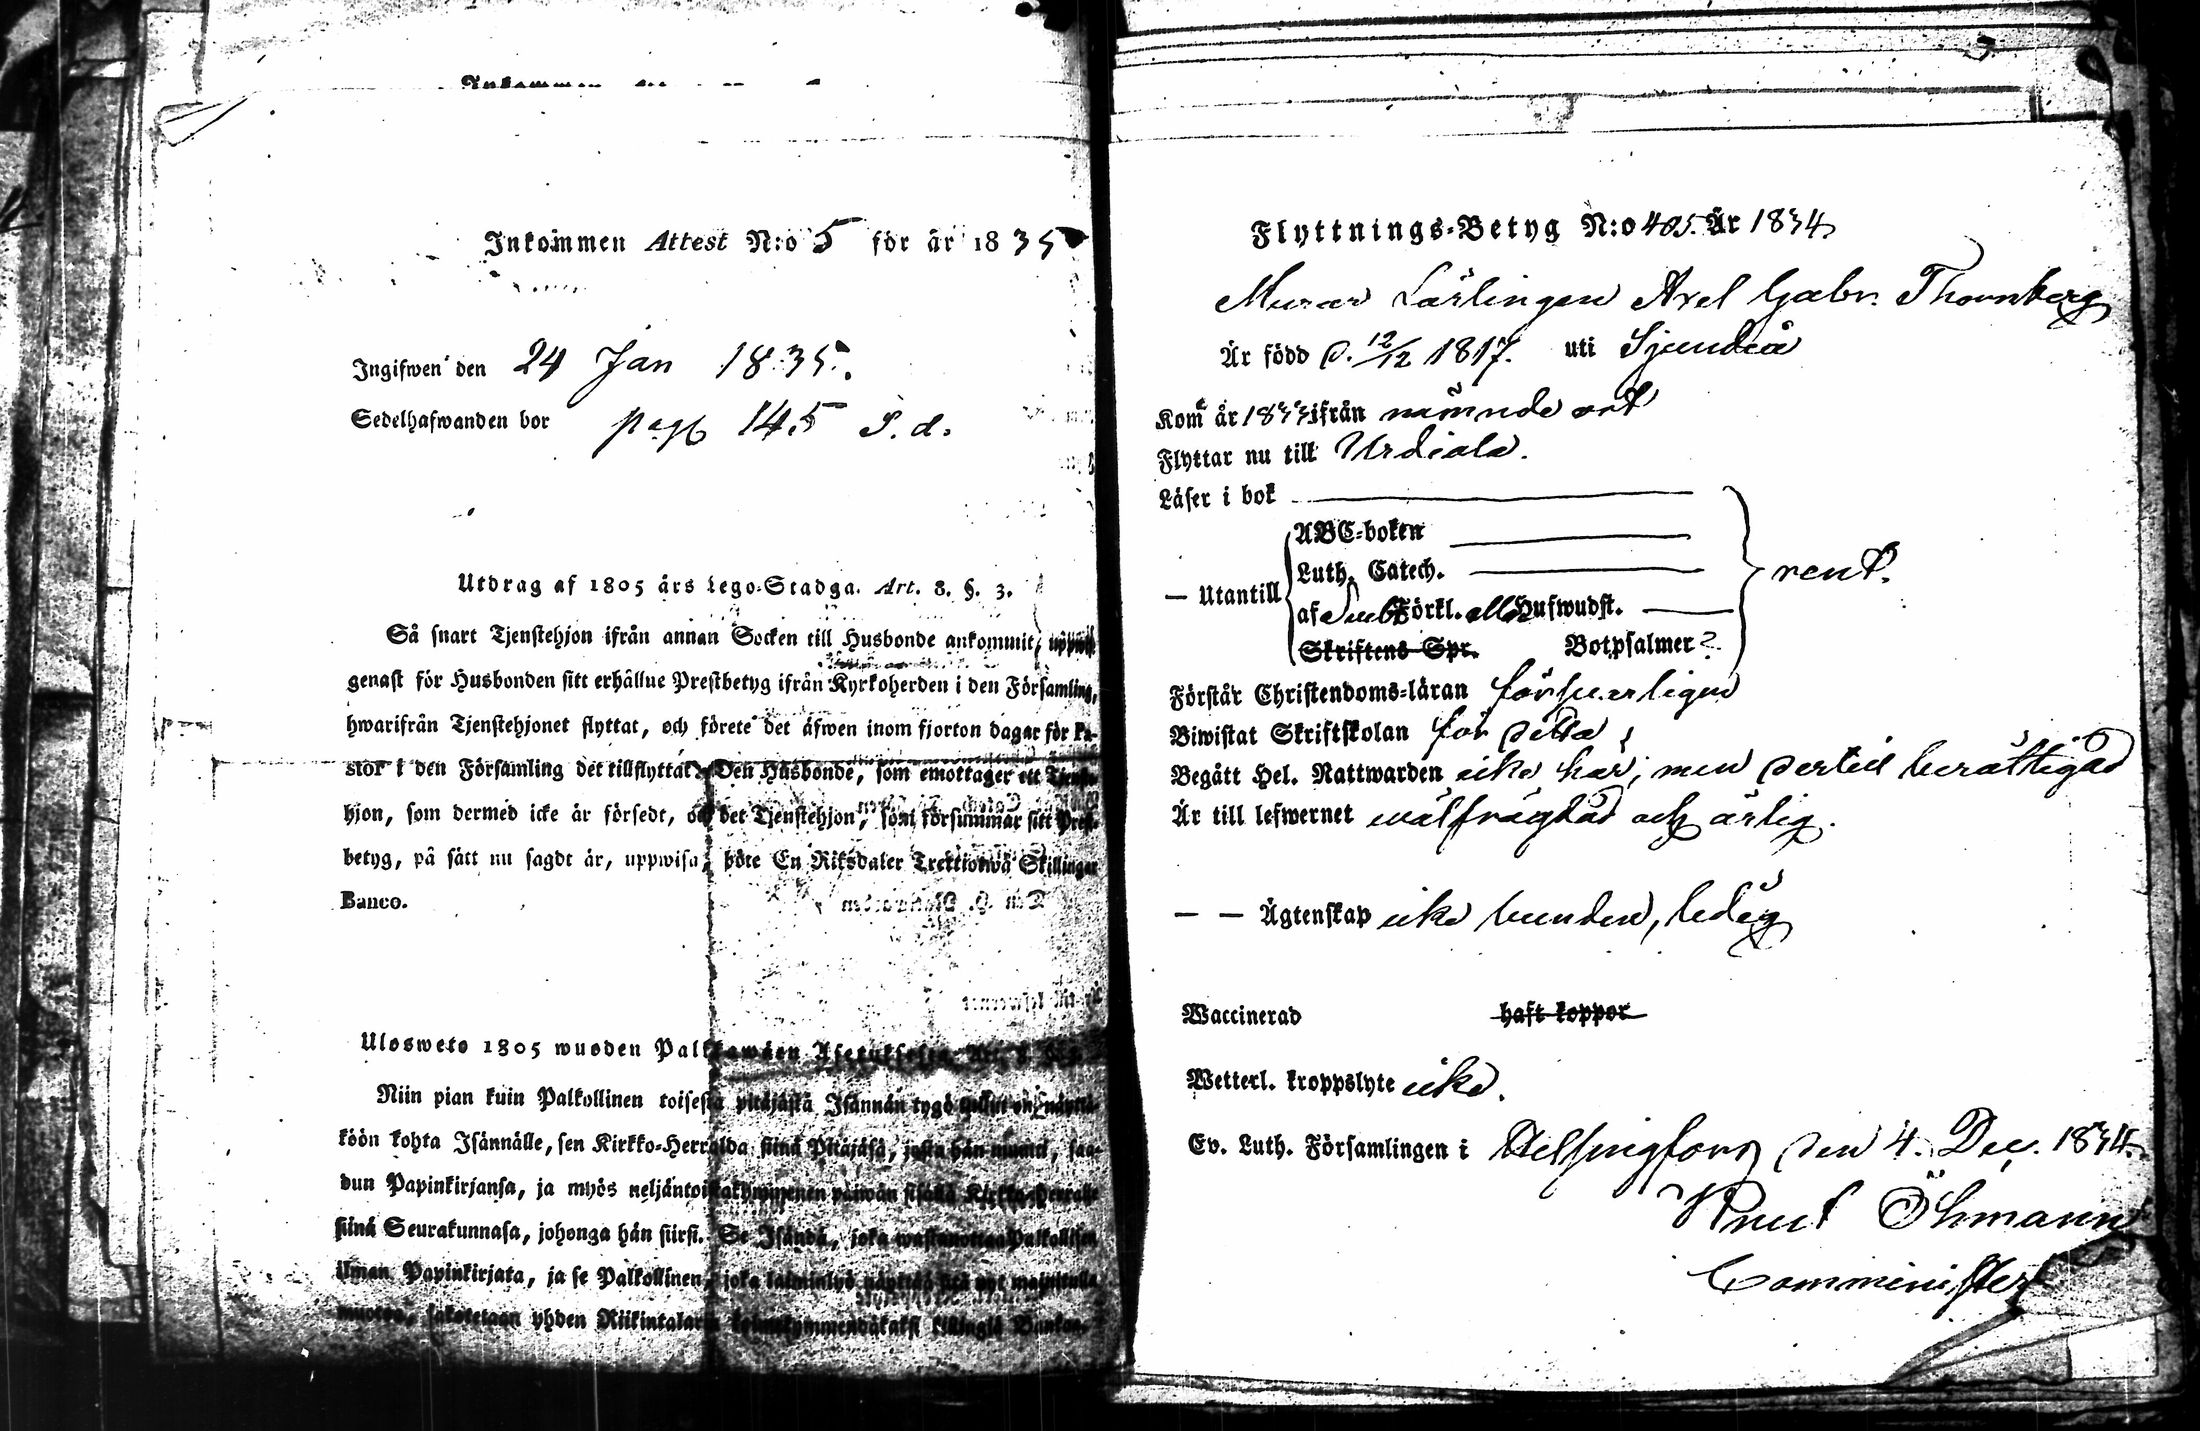 Inkommen Attest N:o 5 för år 1835
Ingifwen den 24 Jan 1835.
Sedelhafwanden bor pag 145 S. d.
Utdrag af 1805 års Lego-Stadga. Art. 8. §. 3.
Så snart Tjenstehjon ifrån annan Socken till Husbonde ankommit,
genast för Husbonden sitt erhållne Prestbetyg ifrån Kyrkoherden i den Församling,
hwarifrån Tjenstehjonet flyttat, och förete det äfwen inom fjorton dagar för Pa-
stor i den Församling det tillflyttat. Den Husbonde, som emottager ett Tjenste-
hjon, som dermed icke är försedt, och det Tjenstehjon, som försummar sitt Prest-
betyg, på sätt nu sagdt är, uppwisa, böte En Riksdaler Trettiotwå Skillingar
Banco.
Ulosweto 1805 wuoden Palkkawäen Asetuksesta. Art. 8.
Niin pian kuin Palkollinen toisesta pitäjästä Isännän tygö
köön kohta Isännälle, sen Kirkko-Herralda siinä Pitäjäsä, josta hän muutti, saa-
dun Papinkirjansa, ja myös neljäntoistakymmenen päiwän sisällä Kirkko-Herralle
siinä Seurakunnasa, johonga hän siirsi. Se Isändä, joka wastanottaa Palkollisen
ilman Papinkirjata, ja se Palkollinen, joka laiminlyö
muotoa, sakotetaan yhden Riikintalarin kolmekymmendäkaksi killingiä Bankoa.
Flyttnings-Betyg N:o 405. År 1834
Murar Lärlingen Axel Gabr. Thornberg
Är född d. 12/12 1817. uti Sjundeå
Kom år 1833 ifrån nämnde ort
Flyttar nu till Urdiala.
Läser i bok
ABC-boken
Luth. Catech.
— Utantill rent.
af Sveb. Förkl. eller Hufwudst.
Skriftens Spr. Botpsalmer
Förstår Christendoms-läran försvarligen
Biwistat Skriftskolan för detta
Begått Hel. Nattwarden icke här, men dertill berättigad
Är till lefwernet wälfrägdad och ärlig.
— — Ägtenskap icke bunden, ledig
Waccinerad haft koppor
Wetterl. kroppslyte icke.
Ev. Luth. Församlingen i Helsingfors den 4. Dec. 1834.
Knut Öhmann
Comminister